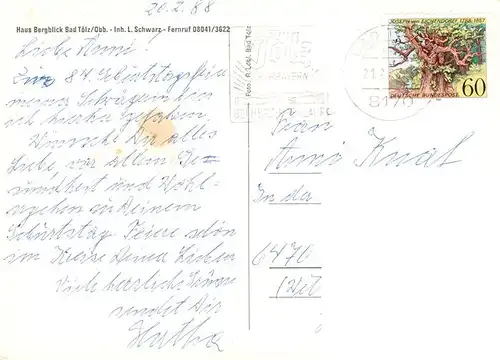 20.2.88
Haus Bergblick Bad Tölz/Obb. - Inh. L. Schwarz - Fernruf 08041/3622
Liebe Anni!
Zum 84. Geburtstagsfeier
meiner Schwägerin bin
ich hierher gefahren.
Wünsche Dir alles
Liebe, vor allem Ge-
sundheit und Wohl-
ergehen zu Deinem
Geburtstag. Feiere schön
im Kreise Deiner Lieben
Viele herzliche Grüsse
sendet Dir
Foto: R. Lehr, Bad Tölz
Tölz
21.2.
8170
JOSEPH von EICHENDORFF 1788-1857
DEUTSCHE BUNDESPOST
60
Frau
Anni Knaf
In der
6470